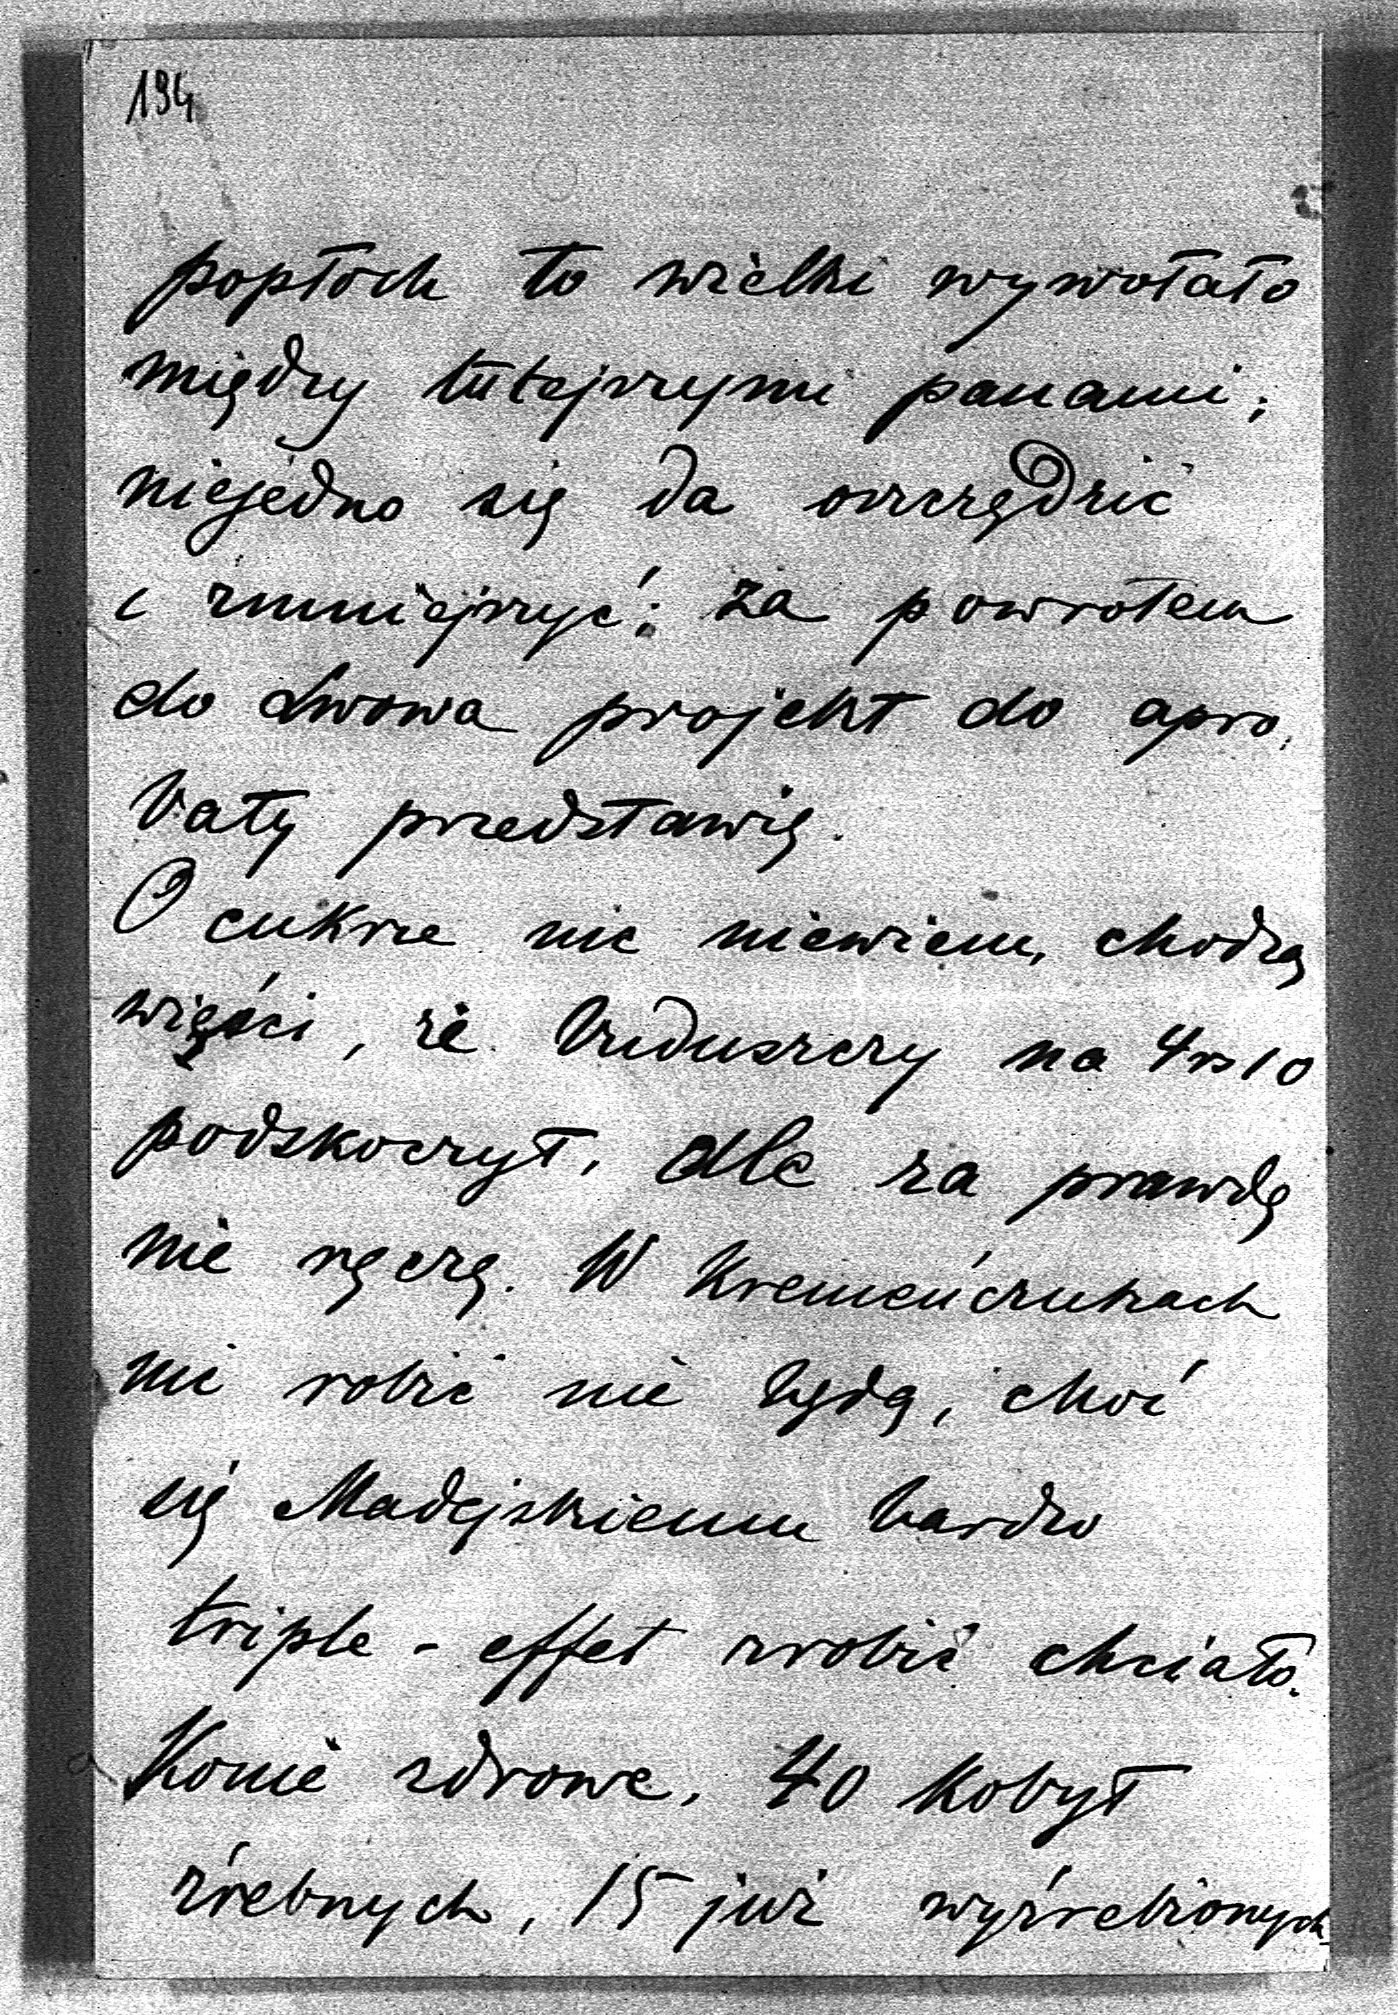 194
popłoch to wielki wywołało
między tutejszymi panami;
niejedno się da oszczędzić
i zmniejszyć: za powrotem
do Lwowa projekt do apro-
baty przedstawię.
O cukrze nic niewiem, chodzą
wieści, że buduszczy na 4 rs 10
podskoczył, ale za prawdę
nie ręczę. W Kremeńczukach
nic robić nie będą, choć
się Madejskiemu bardzo
triple-effet zrobić chciało.
Konie zdrowe, 40 kobył
źrebnych, 15 już wyźrebionych